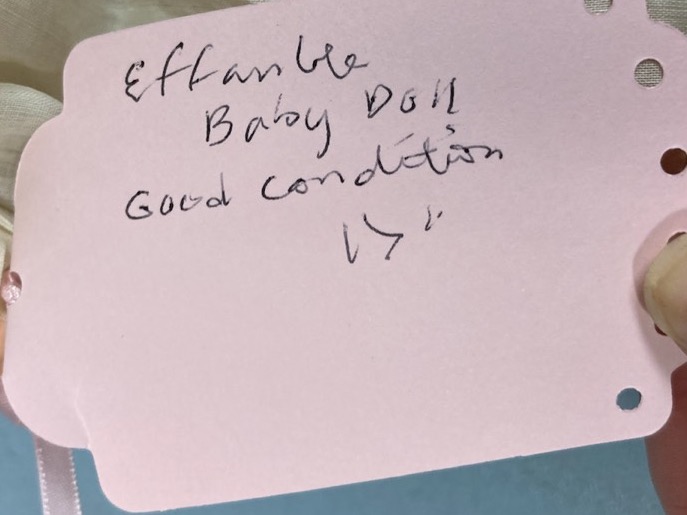 Effanbee
Baby Doll
Good condition